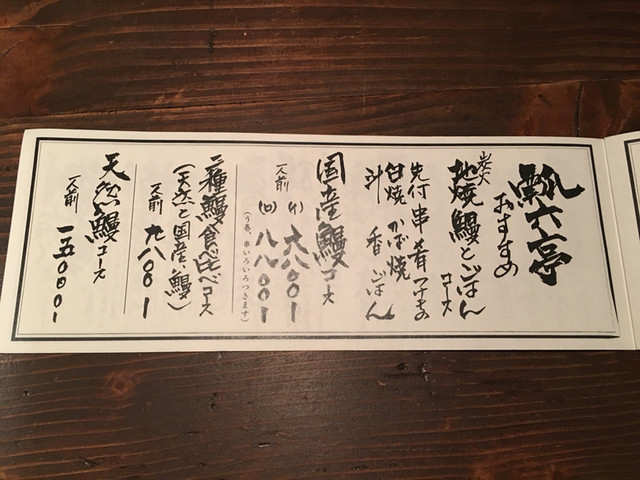 瓢六亭
おすすめ
炭火
地焼鰻とごはん
コース
先付 串 肴 つけもの
白焼 かば焼
汁 香 ごはん
国産鰻コース
一人前
(イ) 六八〇〇
(ロ) 八八〇〇
(う巻、串いろいろつきます)
二種鰻食べ比べコース
(天然と国産鰻)
一人前 九八〇〇
天然鰻コース
一人前 一五〇〇〇